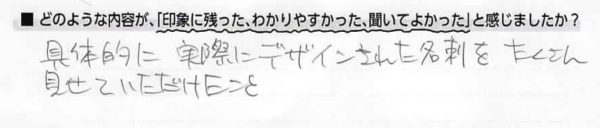 ■ どのような内容が、「印象に残った、わかりやすかった、聞いてよかった」と感じましたか？
具体的に 実際にデザインされた名刺を たくさん
見せていただけたこと